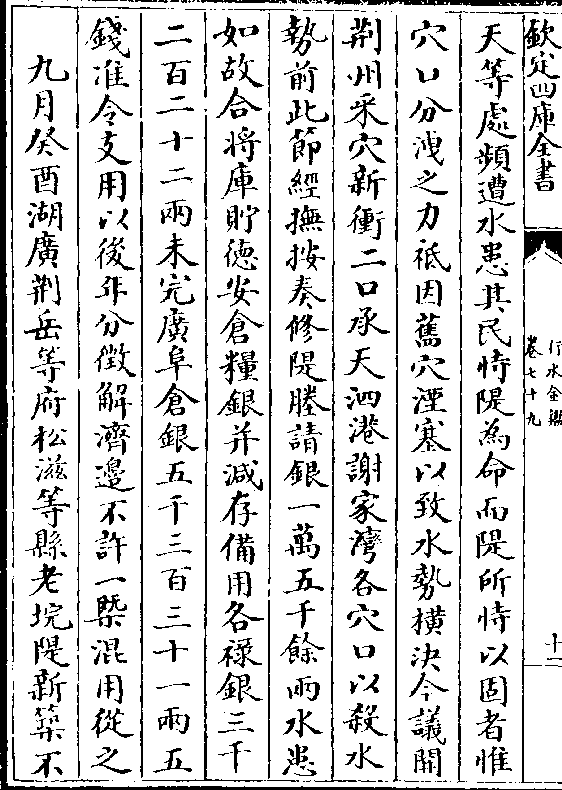 欽定四庫全書
行水金鑑
卷七十九
十二
天等處頻遭水患其民恃隄為命而隄所恃以固者惟
穴口分洩之力祗因舊穴湮塞以致水勢橫決今議開
荊州采穴新衝二口承天泗港謝家灣各穴口以殺水
勢前此節經撫按奏修隄塍請銀一萬五千餘兩水患
如故合將庫貯德安倉糧銀并減存備用各祿銀三千
二百二十二兩未完廣阜倉銀五千三百三十一兩五
錢准令支用以後年分徵解濟邊不許一槩混用從之
九月癸酉湖廣荆岳等府松滋等縣老垸隄新築不